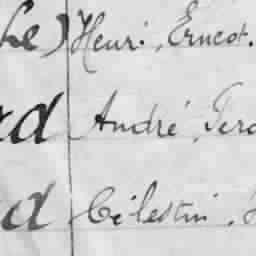 he) Henri, Ernest.
rd André, Ferd
d Célestin,